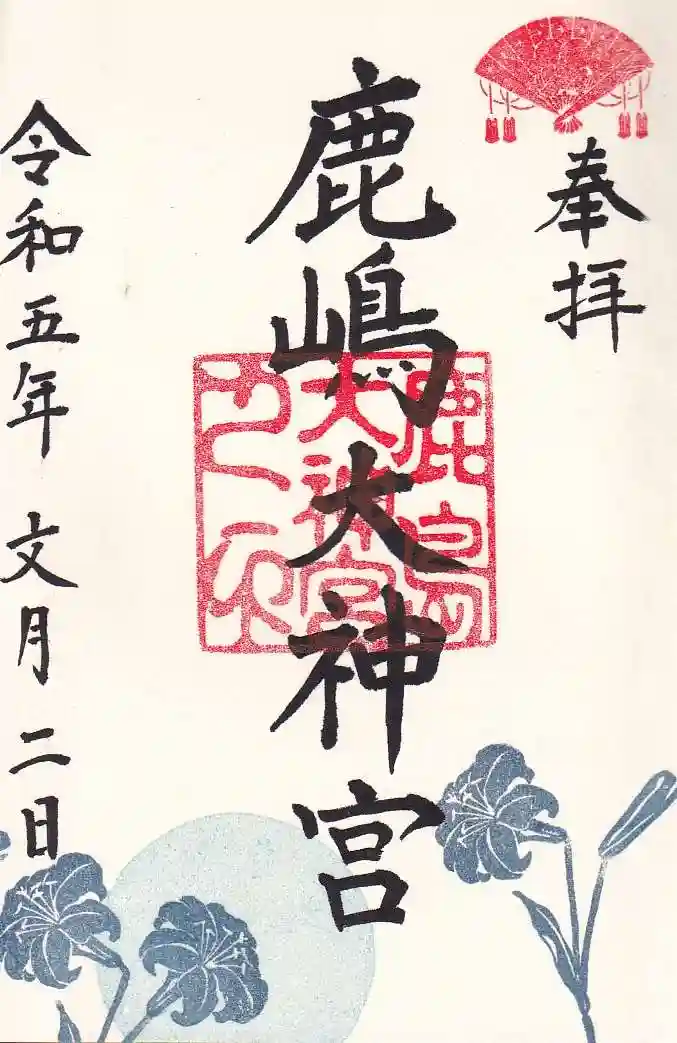 奉拝
鹿嶋大神宮
鹿嶋
大神宮
之印
令和五年 文月 二日